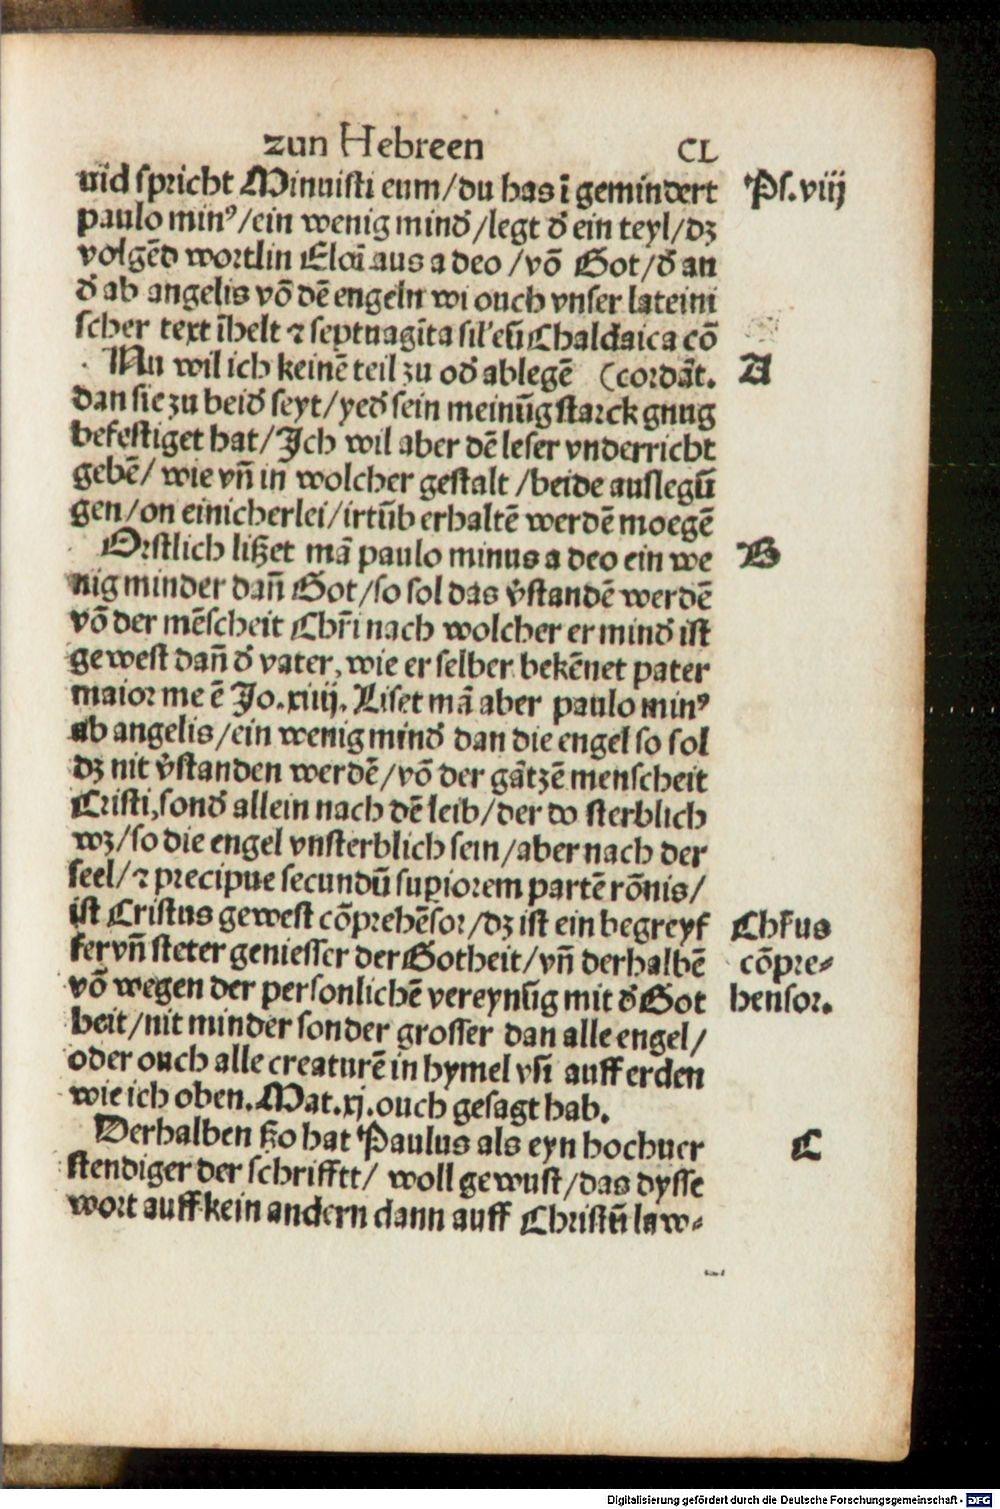 zun Hebreen CL
uid spricht Minuisti eum/du has ī gemindert Ps.viij
paulo minꝰ/ein wenig minď/legt ď ein teyl/dz
volgēd wortlin Eloī aus a deo/võ Got/ď an
ď ab angelis võ dē engeln wi ouch vnser lateini
scher text īhelt ⁊ septuagīta sil'eñ Chaldaica cõ
Nu wil ich keinē teil zu oď ablegē (cordāt. A
dan sie zu beiď seyt/yeď sein meinūg starck gnug
befestiget hat/Ich wil aber dē leser vnderricht
gebē/ wie vñ in wolcher gestalt/beide auslegū
gen/on einicherlei/irtūb erhaltē werdē moegē
Erstlich lißet mā paulo minus a deo ein we B
nig minder dañ Got/so sol das v̉standē werdē
võ der mēscheit Chr̄i nach wolcher er minď ist
gewest dañ ď vater, wie er selber bekēnet pater
maior me ē Jo.xiiij. Liset mā aber paulo minꝰ
ab angelis/ein wenig minď dan die engel so sol
dz nit v̉standen werdē/võ der gātzē menscheit
Cristi,sonď allein nach dē leib/der do sterblich
wz/so die engel vnsterblich sein/aber nach der
seel/⁊ precipue secundū supiorem partē rõnis/
ist Cristus gewest cõprehēsor/dz ist ein begreyf Chr̄us
fer vñ steter geniesser der Gotheit/vñ derhalbē cõpre-
võ wegen der personlichē vereynūg mit ď Got hensor.
heit/nit minder sonder grosser dan alle engel/
oder ouch alle creaturē in hymel vñ auff erden
wie ich oben.Mat.xj.ouch gesagt hab.
Derhalben ßo hat Paulus als eyn hochuer C
stendiger der schrifftt/ woll gewust/das dysse
wort auff kein andern dann auff Christū law-
Digitalisierung gefördert durch die Deutsche Forschungsgemeinschaft - DFG